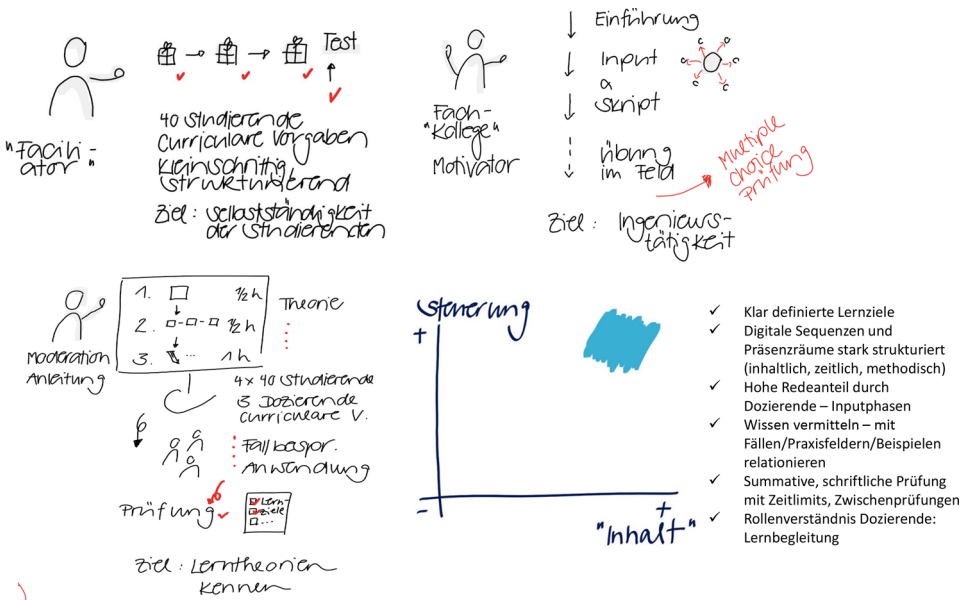 "Facilit-
ator"
Test
40 Studierende
Curriculare Vorgaben
Kleinschrittig
strukturierend
Ziel: Selbstständigkeit
der Studierenden
Fach-
"Kollege"
Motivator
Einführung
Input
a
Skript
Übung
im Feld
Multiple
choice
Prüfung
Ziel: Ingenieurs-
tätigkeit
Moderation
Anleitung
1. ½h
2. ½h
3. ... 1h
Theorie
4x40 Studierende
3 Dozierende
Curriculare V.
Fallbespr.
Anwendung
Prüfung
Lern-
ziele
...
Ziel: Lerntheorien
kennen
Steuerung
+
-
+
"Inhalt"
✓ Klar definierte Lernziele
✓ Digitale Sequenzen und
Präsenzräume stark strukturiert
(inhaltlich, zeitlich, methodisch)
✓ Hohe Redeanteil durch
Dozierende – Inputphasen
✓ Wissen vermitteln – mit
Fällen/Praxisfeldern/Beispielen
relationieren
✓ Summative, schriftliche Prüfung
mit Zeitlimits, Zwischenprüfungen
✓ Rollenverständnis Dozierende:
Lernbegleitung